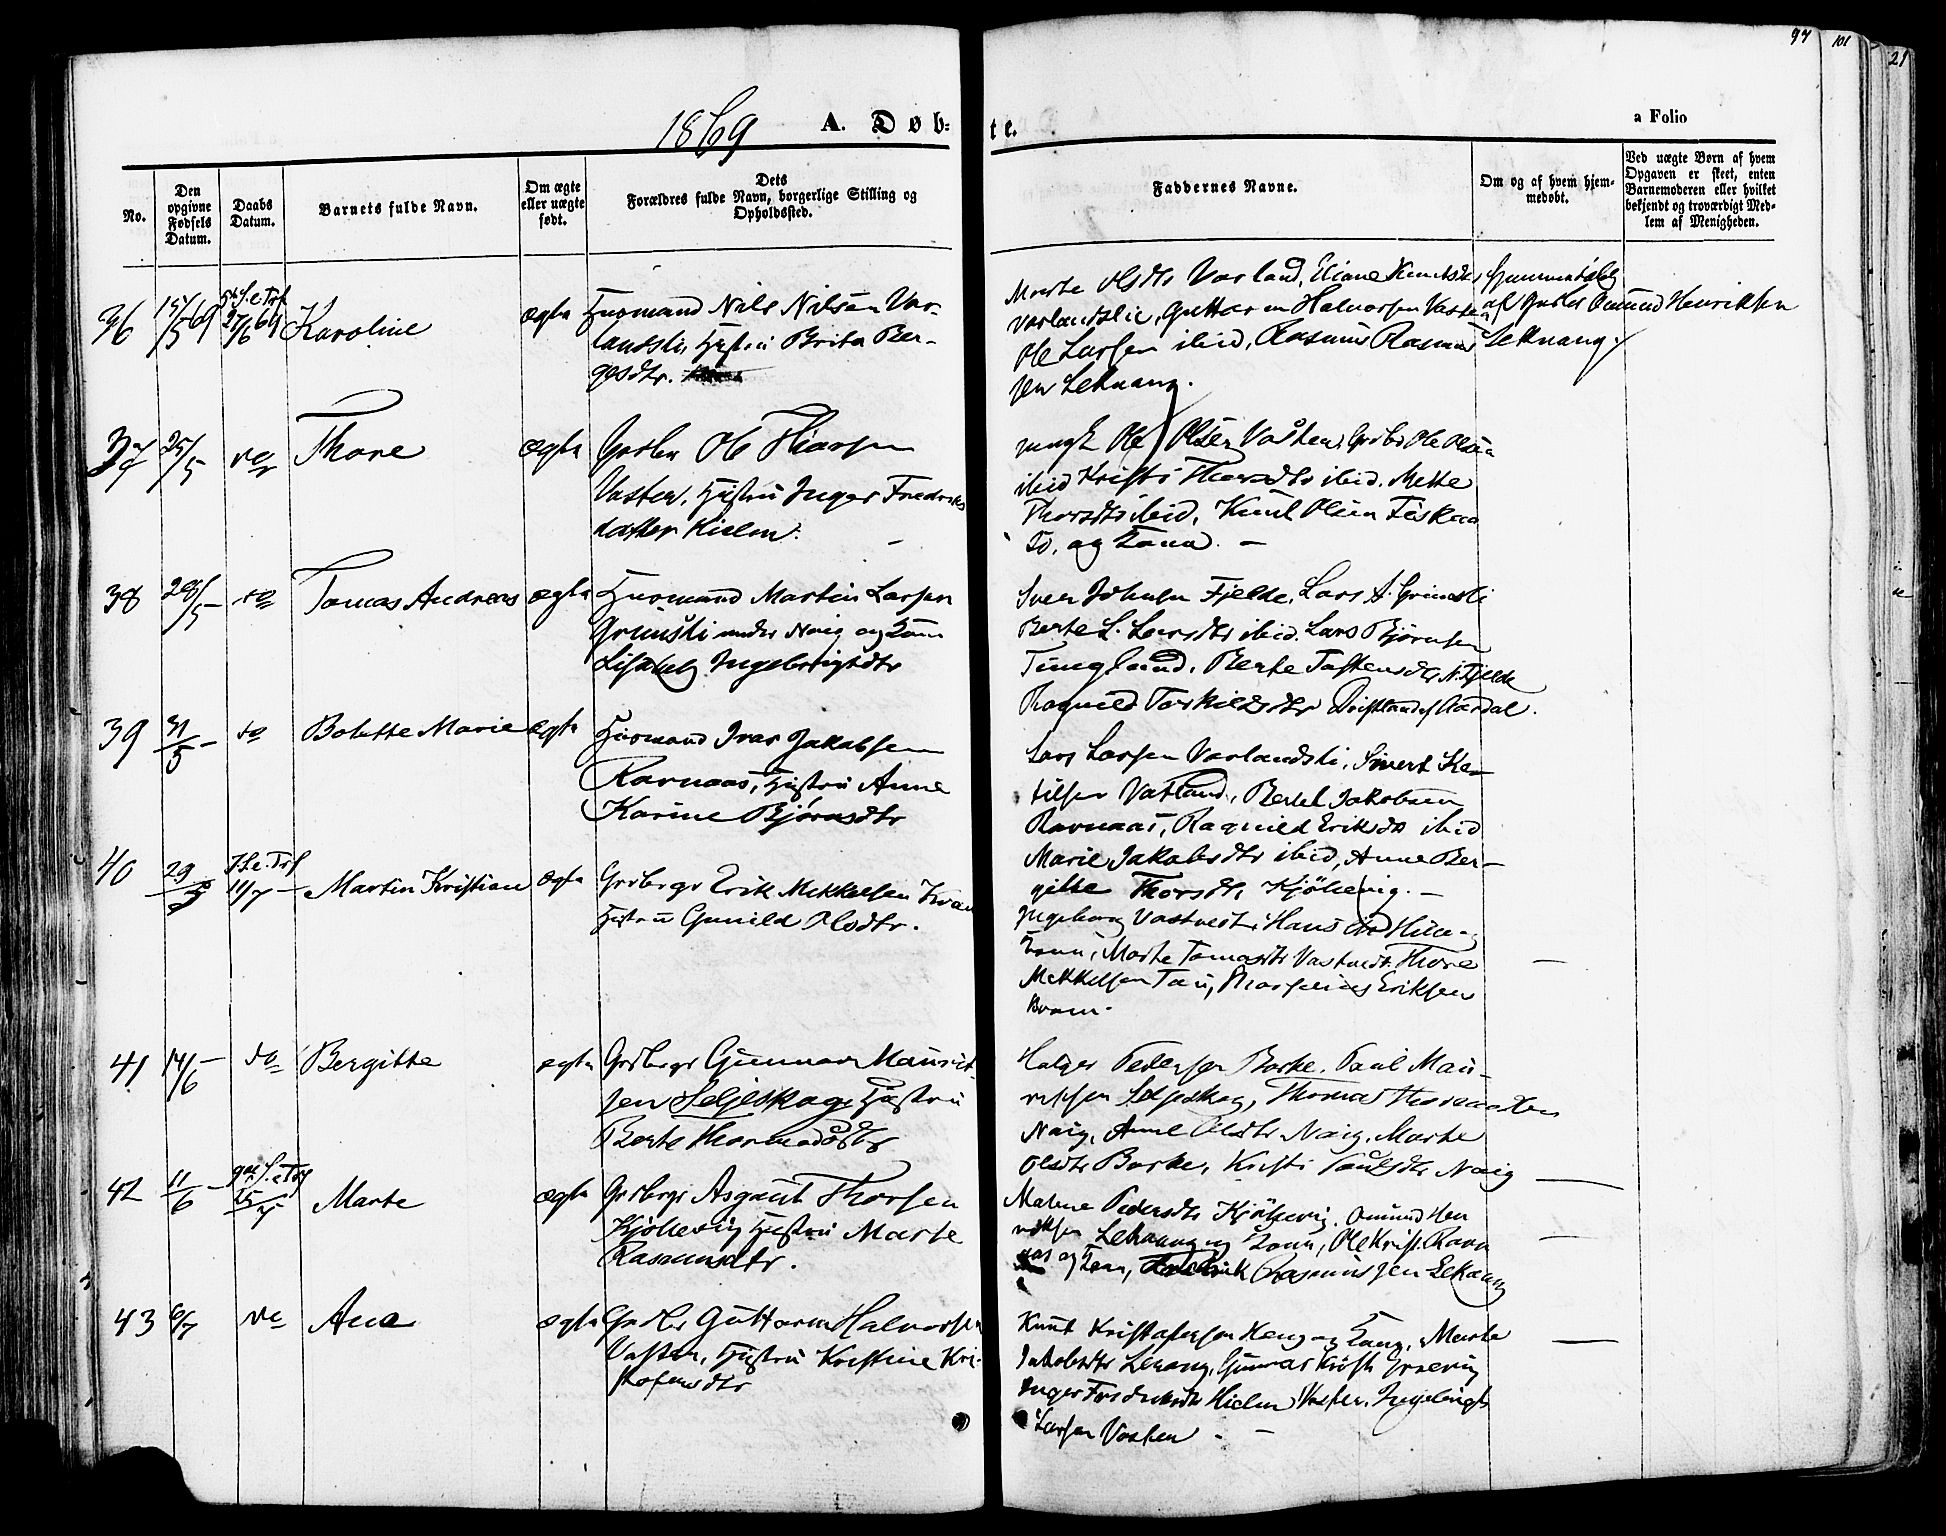 97 101 21
1869 A. Døb: te. a Folio
No.
Den opgivne Fødsels Datum.
Daabs Datum.
Barnets fulde Navn.
Om ægte eller uægte født.
Dets Forældres fulde Navn, borgerlige Stilling og Opholdssted.
Faddernes Navne.
Om og af hvem hjemmedøbt.
Ved uægte Børn af hvem Opgaven er skeet, enten Barnemoderen eller hvilket bekjendt og troværdigt Medlem af Menigheden.
36 15/5 69 5te S. e. Trf 27/6 69 Karoline ægte Huusmand Nils Nilsen Var-
landsli, Hustru Brita Ber-
gesdtr.
Marte Olsdtr Varland, Eliane Knutsdtr
Varlandslie, Guttorm Halvorsen Vasten
Ole Larsen ibid, Rasmus Rasmus
sen Leknang.
Hjemmedøbt
af Gaarder Omund Henriksen
Leknang
37 25/5 do Thore ægte Ole Thorsen
Vasten, Hustru Inger Fredriks
datter Hielm.
ungk Ole Olsen Vasten, Ole Olsen
ibid Kristi Thorsdtr ibid. Mette
Thorsdtr ibid, Knut Olsen Fiskaa
To, og Kona.
38 28/5 do Tomas Andreas ægte Huusmand Martin Larsen
Grimsli under Naig og Kone
Lisabet Ingebrigtdtr
Sven Johnsen Fjelde, Lars A. Grimsli
Berte L. Larsdtr ibid. Lars Bjørnsen
Tungland, Berte Tostensdtr N. Fjelde
Ragnild Torkildsdtr Aardal.
39 31/5 do Bolette Marie ægte Huusmand Ivar Jakobsen
Ravnaas, Hustru Anne
Karine Bjørnsdtr
Lars Larsen Varlandsli, Sivert Ke-
tilsen Vatland, Bertel Jakobsen
Ravnaas, Ragnild Eriksdtr ibid
Marie Jakobsdtr ibid, Anne Ber-
gitte Thorsdtr Kjølevig.
40 29/5 7 S. e. Trf 11/7 Martin Kristian ægte Grdbrgr Erik Mikkelsen
Hustru Gunild Olsdtr.
Ingeborg Vastvedt, Hans
Kone, Marte Tomasdtr Vastvedt. Thore
Mikkelsen Tau, Eriksen
41 14/6 do Bergitte ægte Grdbrgr Gunnar Maurit-
sen Seljeskog Hustru
Berte Thormodsdtr
Holger Pedersen Barke, Paul Mau-
ritsen Seljeskog, Thomas
Naig, Anne Olsdtr Naig, Marte
Olsdtr Barke, Kristi Paulsdtr Naig
42 11/6 9de S. e. Trf 25/7 Marte ægte Grdbrgr Asgaut Thorsen
Kjølevig Hustru Marte
Rasmusdtr.
Malene Pedersdtr Kjølevig. Omund Hen
riksen Leknang og Kone, Ole Krist. Ravn
aas og Kone, Rasmussen Leknang
43 6/7 do Ane ægte Guttorm Halvorsen
Vasten, Hustru Kristine Kri-
stofersdtr
Knut Kristofersen Heng og Kone, Marte
Jakobsdtr Leknang, Gunnar
Inger Fredriksdtr Hielm Vasten, Ingebrigt
Larsen Vasten